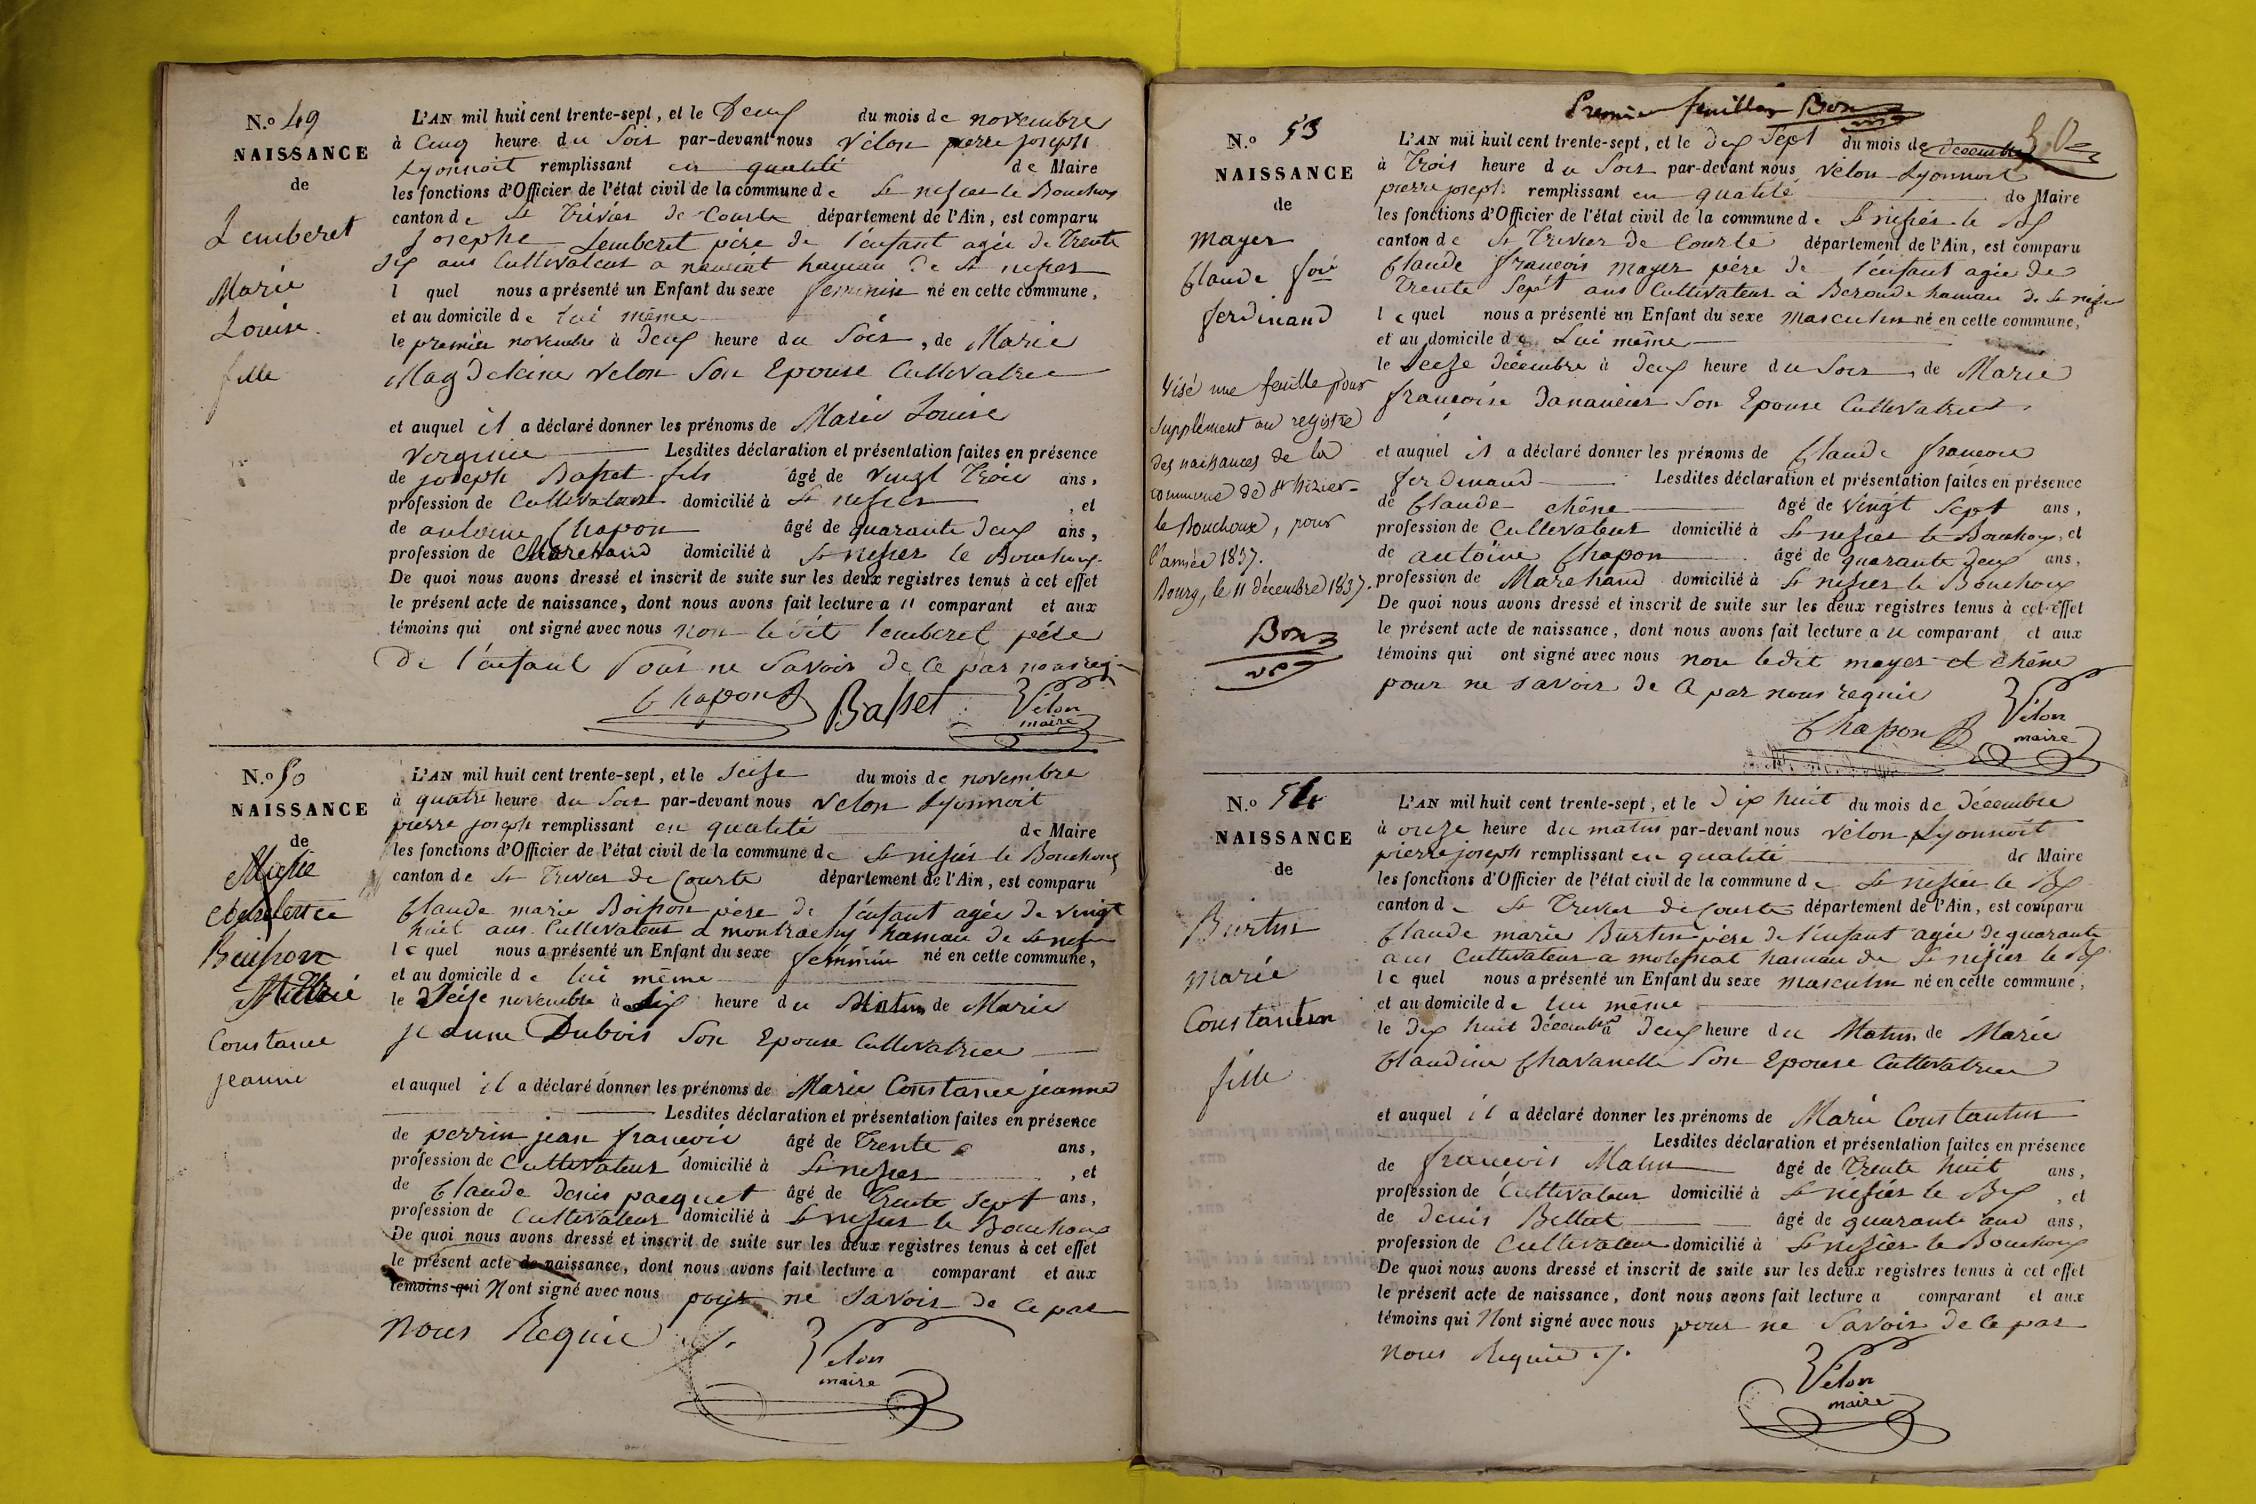 N.o 49
NAISSANCE
de
Lemberet
Marie
Louise
fille
L'AN mil huit cent trente-sept, et le Deux du mois de novembre
à Cinq heure du Soir par-devant nous Vélon pierre joseph
Lyonnoit remplissant en qualité de Maire
les fonctions d'Officier de l'état civil de la commune de St nisier le Bouchoux
canton de St Trivier de Courte département de l'Ain, est comparu
Josephe Lemberet père de l'enfant agée de Trente
Six ans Cultivateur a hameau de St nisier
l quel nous a présenté un Enfant du sexe feminin né en cette commune,
et au domicile de lui même
le premier novembre à Deux heure du Soir, de Marie
Magdeleine Velon Son Epouse Cultivatrice
et auquel il a déclaré donner les prénoms de Marie Louise
Verginie Lesdites déclaration et présentation faites en présence
de joseph Basset fils âgé de Vingt Trois ans,
profession de Cultivateur domicilié à St nisier , et
de antoine Chapon âgé de quarante deux ans,
profession de Marchand domicilié à St nisier le Bouchoux
De quoi nous avons dressé et inscrit de suite sur les deux registres tenus à cet effet
le présent acte de naissance, dont nous avons fait lecture a u comparant et aux
témoins qui ont signé avec nous non ledit lemberet père
De l'enfant Pour ne Savoir de Ce par nous req
Chapon Basset Vélon
maire
N.o 50
NAISSANCE
de
Boisson
Marie
Constance
jeanne
L'AN mil huit cent trente-sept, et le Seize du mois de novembre
à quatre heure du Soir par-devant nous Vélon Lyonnoit
pierre joseph remplissant en qualité de Maire
les fonctions d'Officier de l'état civil de la commune de St nisier le Bouchoux
canton de St Trivier de Courte département de l'Ain, est comparu
Claude marie Boisson père de l'enfant agée de vingt
huit ans Cultivateur a montrachy hameau de St nisier
le quel nous a présenté un Enfant du sexe féminin né en cette commune,
et au domicile de lui même
le Seize novembre à Six heure du Matin de Marie
jeanne Dubois Son Epouse Cultivatrice
et auquel il a déclaré donner les prénoms de Marie Constance jeanne
Lesdites déclaration et présentation faites en présence
de perrin jean françois âgé de Trente ans,
profession de Cultivateur domicilié à St nisier , et
de Claude denis pacquet âgé de Trente Sept ans,
profession de Cultivateur domicilié à St nisier le Bouchoux
De quoi nous avons dressé et inscrit de suite sur les deux registres tenus à cet effet
le présent acte de naissance, dont nous avons fait lecture a comparant et aux
témoins qui Nont signé avec nous pour ne Savoir de Ce par
nous Requie
Vélon
maire
Premier feuillet Bon
50
N.o 53
NAISSANCE
de
mayer
Claude fois
ferdinand
Visé une feuille pour
supplément au registre
des naissances de la
commune de St Nizier-
le Bouchoux, pour
l'année 1837.
Bourg, le 11 décembre 1837.
Bon
L'AN mil huit cent trente-sept, et le dix Sept du mois de decembre
à Trois heure du Soir par-devant nous Vélon Lyonnoit
pierre joseph remplissant en qualité de Maire
les fonctions d'Officier de l'état civil de la commune de St nisier le Bx
canton de St Trivier de Courte département de l'Ain, est comparu
Claude françois mayer père de l'enfant agée de
Trente Sept ans Cultivateur à Beronde hameau de St nisier
le quel nous a présenté un Enfant du sexe masculin né en cette commune,
et au domicile de Lui même
le Seize décembre à deux heure du Soir, de Marie
françoise Danancier Son Epouse Cultivatrice
et auquel il a déclaré donner les prénoms de Claude françois
ferdinand Lesdites déclaration et présentation faites en présence
de Claude chêne âgé de Vingt Sept ans,
profession de Cultivateur domicilié à St nisier le Bouchoux, et
de antoine Chapon âgé de quarante deux ans,
profession de Marchand domicilié à St nisier le Bouchoux
De quoi nous avons dressé et inscrit de suite sur les deux registres tenus à cet effet
le présent acte de naissance, dont nous avons fait lecture a u comparant et aux
témoins qui ont signé avec nous non ledit mayer et chêne
pour ne savoir de Ce par nous requie
Chapon Vélon
maire
N.o 54
NAISSANCE
de
Burtin
marie
Constantin
fille
L'AN mil huit cent trente-sept, et le Dix huit du mois de décembre
à onze heure du matin par-devant nous Vélon Lyonnoit
pierre joseph remplissant en qualité de Maire
les fonctions d'Officier de l'état civil de la commune de St nisier le Bx
canton de St Trivier de Courte département de l'Ain, est comparu
Claude marie Burtin père de l'enfant agée de quarante
ans Cultivateur a hameau de St nisier le Bx
le quel nous a présenté un Enfant du sexe masculin né en cette commune,
et au domicile de lui même
le Dix huit Décembre à deux heure du Matin de Marie
Claudine Chavanelle Son Epouse Cultivatrice
et auquel il a déclaré donner les prénoms de Marie Constantin
Lesdites déclaration et présentation faites en présence
de françois Matin âgé de Trente huit ans,
profession de Cultivateur domicilié à St nisier le Bx , et
de denis Bellat âgé de quarante ans ans,
profession de Cultivateur domicilié à St nisier le Bouchoux
De quoi nous avons dressé et inscrit de suite sur les deux registres tenus à cet effet
le présent acte de naissance, dont nous avons fait lecture a comparant et aux
témoins qui Nont signé avec nous pour ne Savoir de Ce par
nous Requie
Vélon
maire